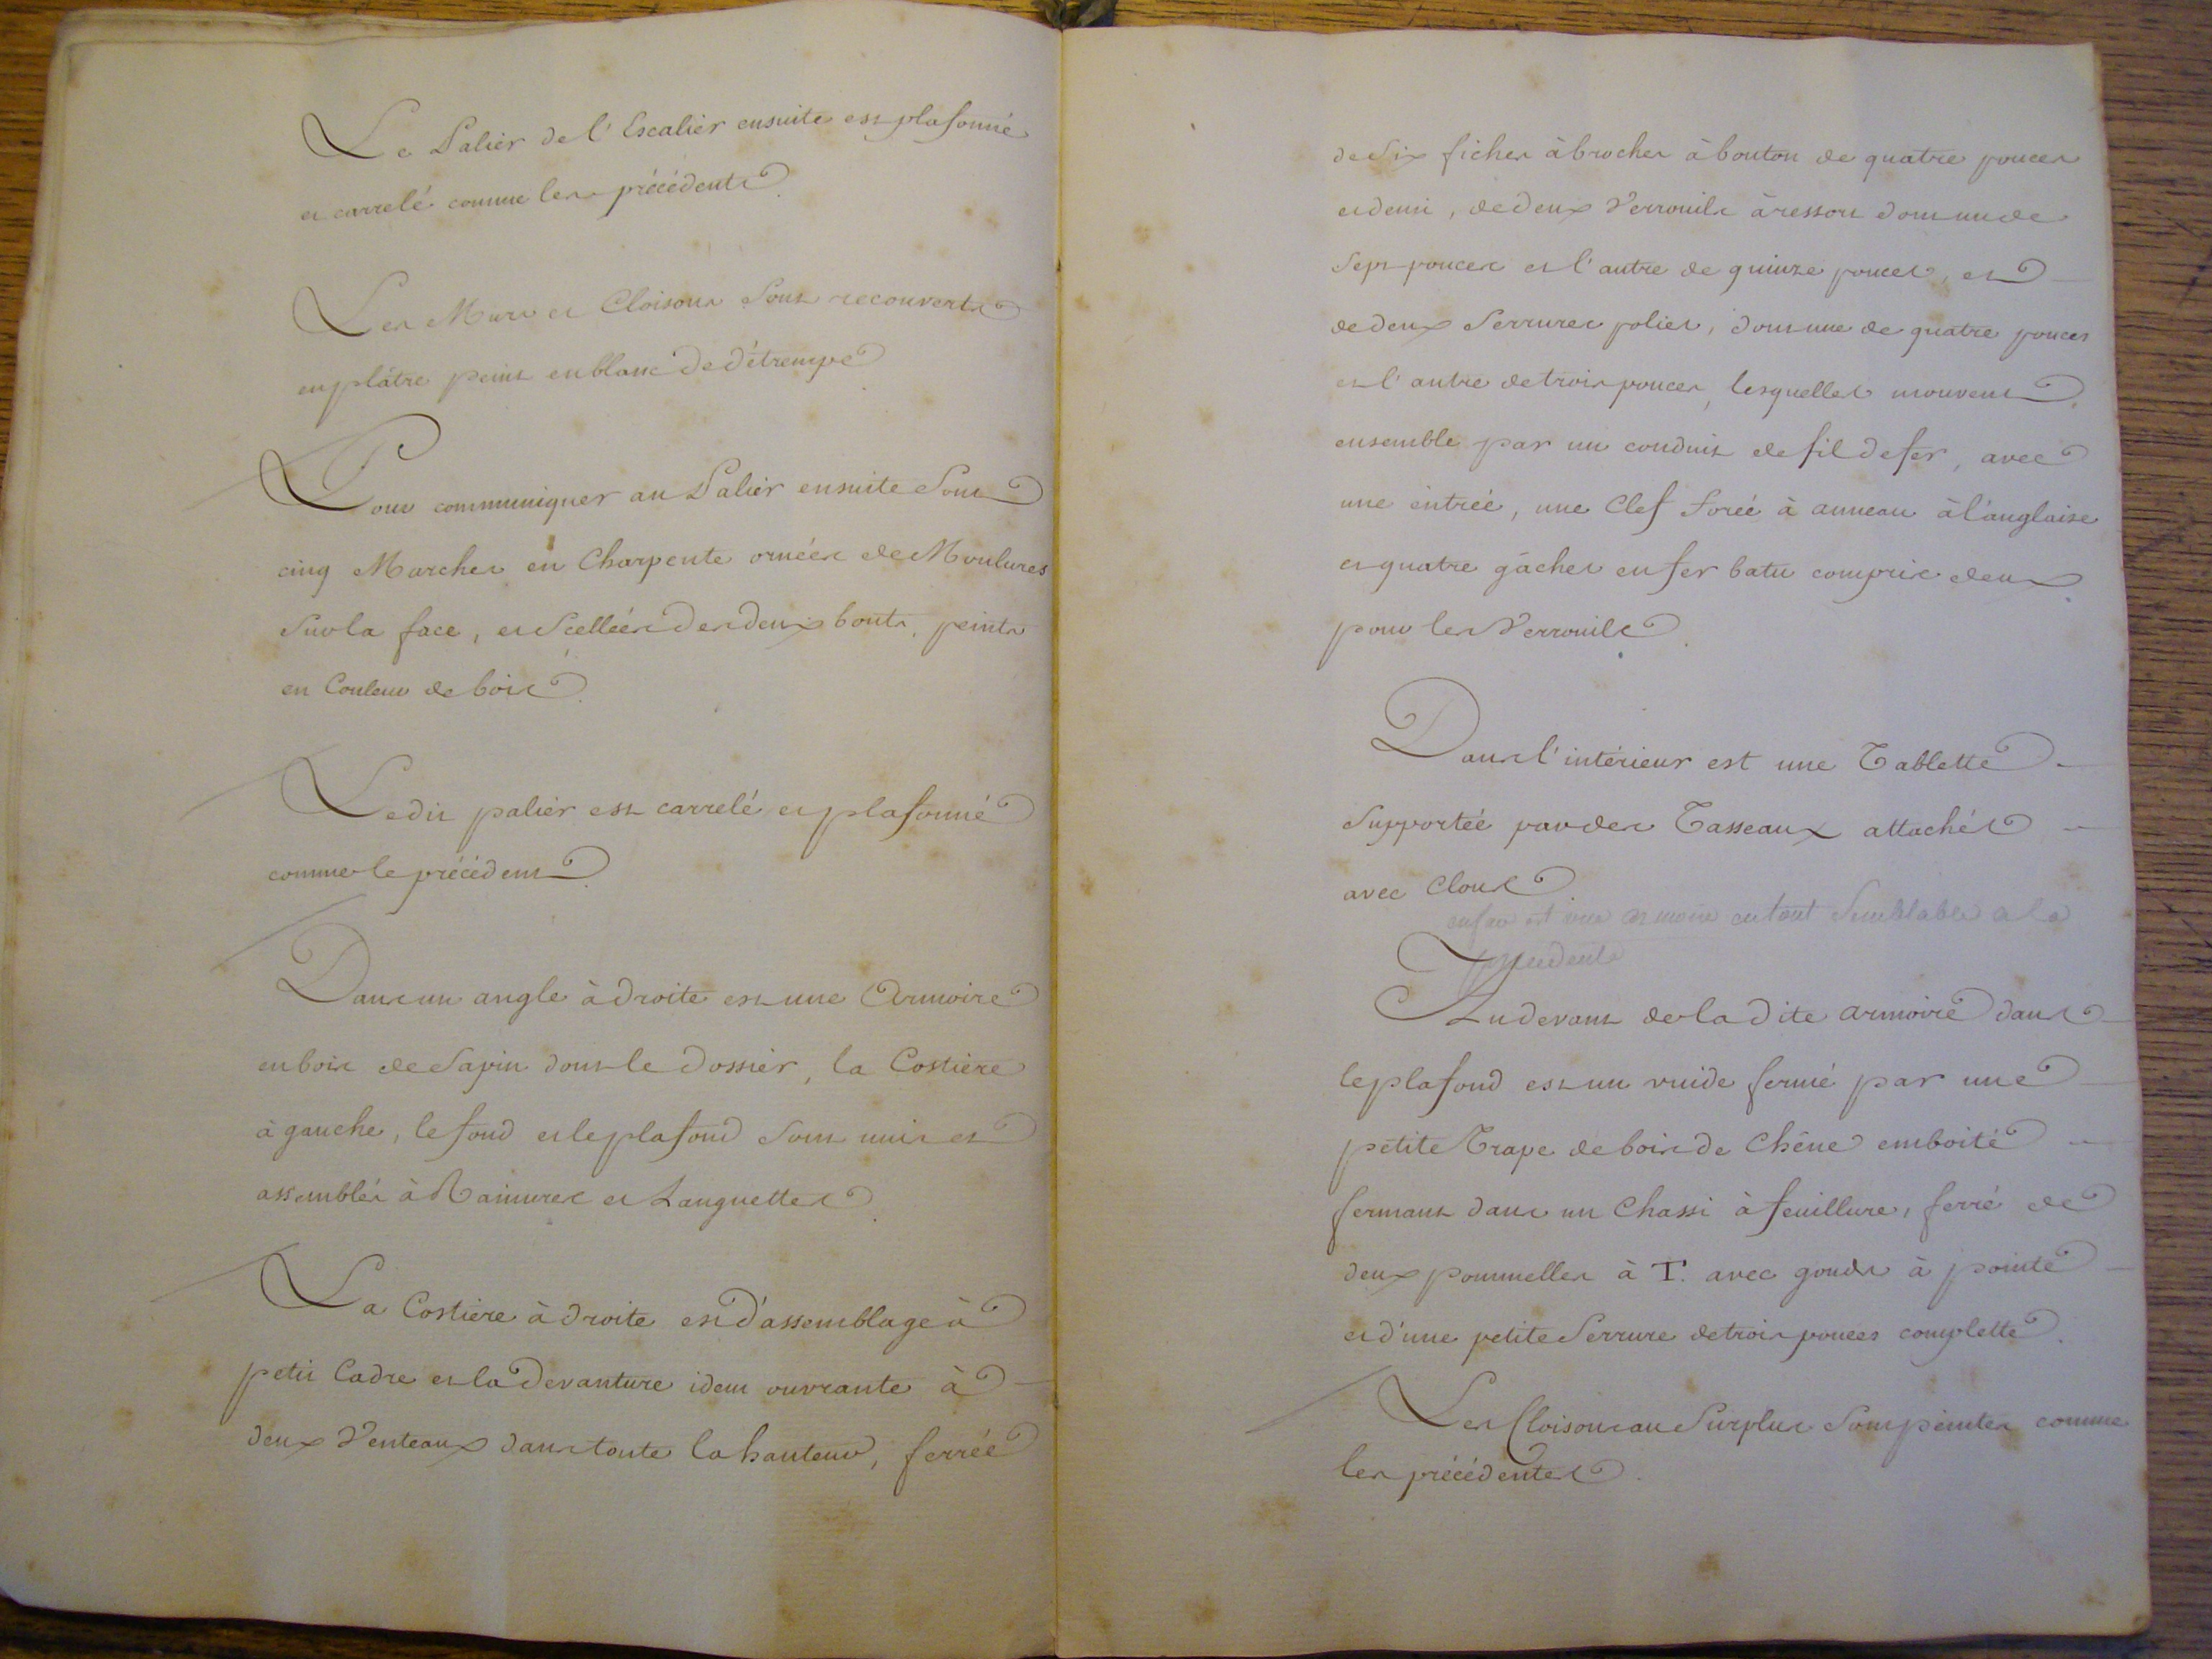 Le Palier de l'Escalier ensuite est plafonné
et carrelé comme les précédents.
Les Murs et Cloisons Sont recouverts
en plâtre peint en blanc De Détrempe
Pour communiquer au Palier ensuite Sont
cinq Marches en Charpente ornées de Moulures
Sur la face, et Scellées Des deux bouts, peints
en Couleur de bois.
Ledit palier est carrelé et plafonné
comme le précédent.
Dans un angle à Droite est une Armoire
en bois de Sapin dont le Dossier, la Costiere
à gauche, le fond et le plafond Sont unis et
assemblés à Rainures et Languettes.
La Costiere à Droite est D'assemblage à
petit Cadre et la Devanture idem ouvrante à
deux Venteaux dans toute la hauteur, ferrée
de Six fiches à broches à bouton de quatre pouces
et demi, de deux Verrouils à ressort dont un de
Sept pouces et l'autre de quinze pouces, et
de deux Serrures polies, dont une de quatre pouces
et l'autre de trois pouces, lesquelles mouvent
ensemble par un conduit de fil de fer, avec
une entrée, une Clef forée à anneau à l'anglaise
et quatre gâches en fer batu compris deux
pour les Verrouils.
Dans l'intérieur est une Tablette
Supportée par des Tasseaux attachés
avec Clous.
est une armoire en tout Semblable a la
précédente
Au devant de la Dite armoire dans
le plafond est un vuide fermé par une
petite Trape de bois de Chêne emboité
fermant dans un Chassi à feuillure, ferré de
deux pommelles à T. avec gonds à pointe
et d'une petite Serrure de trois pouces complette.
Les Cloisons au Surplus Sont peintes comme
les précédentes.